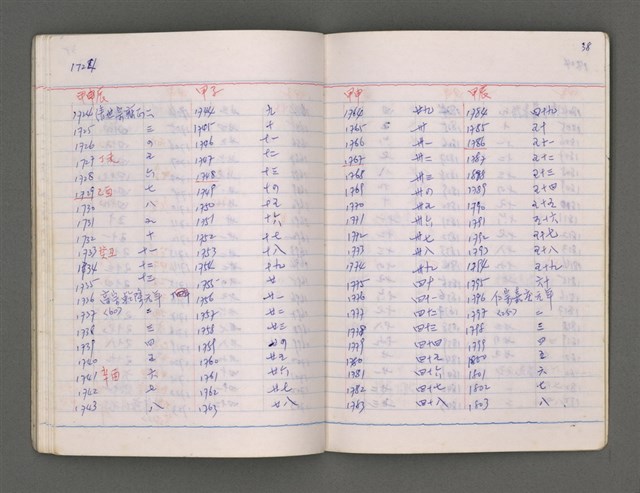 1724
38
甲辰 甲子
1724 清世宗雍正二 1744 九
1725 三 1745 十
1726 四 1746 十一
1727 丁未 五 1747 十二
1728 六 1748 十三
1729 己酉 七 1749 十四
1730 八 1750 十五
1731 九 1751 十六
1732 十 1752 十七
1733 癸丑 十一 1753 十八
1734 十二 1754 十九
1735 十三 1755 廿
1736 高宗乾隆元年 1756 廿一
1737 (60) 二 1757 廿二
1738 三 1758 廿三
1739 四 1759 廿四
1740 五 1760 廿五
1741 辛酉 六 1761 廿六
1742 七 1762 廿七
1743 八 1763 廿八
甲申 甲辰
1764 廿九 1784 四十九
1765 卅 1785 五十
1766 卅一 1786 五十一
1767 卅二 1787 五十二
1768 卅三 1788 五十三
1769 卅四 1789 五十四
1770 卅五 1790 五十五
1771 卅六 1791 五十六
1772 卅七 1792 五十七
1773 卅八 1793 五十八
1774 卅九 1794 五十九
1775 四十 1795 六十
1776 四十一 1796 仁宗嘉庆元年
1777 四十二 1797 (25) 二
1778 四十三 1798 三
1779 四十四 1799 四
1780 四十五 1800 五
1781 四十六 1801 六
1782 四十七 1802 七
1783 四十八 1803 八